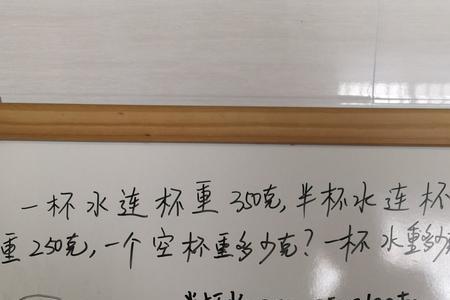 一杯水连杯重350克,半杯水连杯
重250克,一个空杯重多少克?一杯水重多少